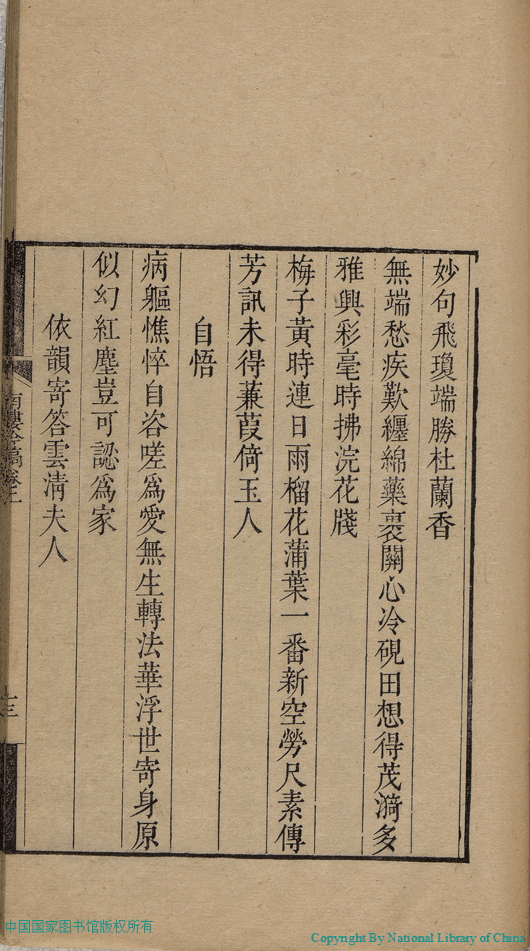 妙句飛瓊端勝杜蘭香
無端愁疾歎纏綿藥裹關心冷硯田想得茂漪多
雅興彩毫時拂浣花牋
梅子黃時連日雨榴花蒲葉一番新空勞尺素傳
芳訊未得蒹葭倚玉人
自悟
病軀憔悴自咨嗟爲愛無生轉法華浮世寄身原
似幻紅塵豈可認爲家
依韻寄答雲淸夫人
中国国家图书馆版权所有
Copyright By National Library of China